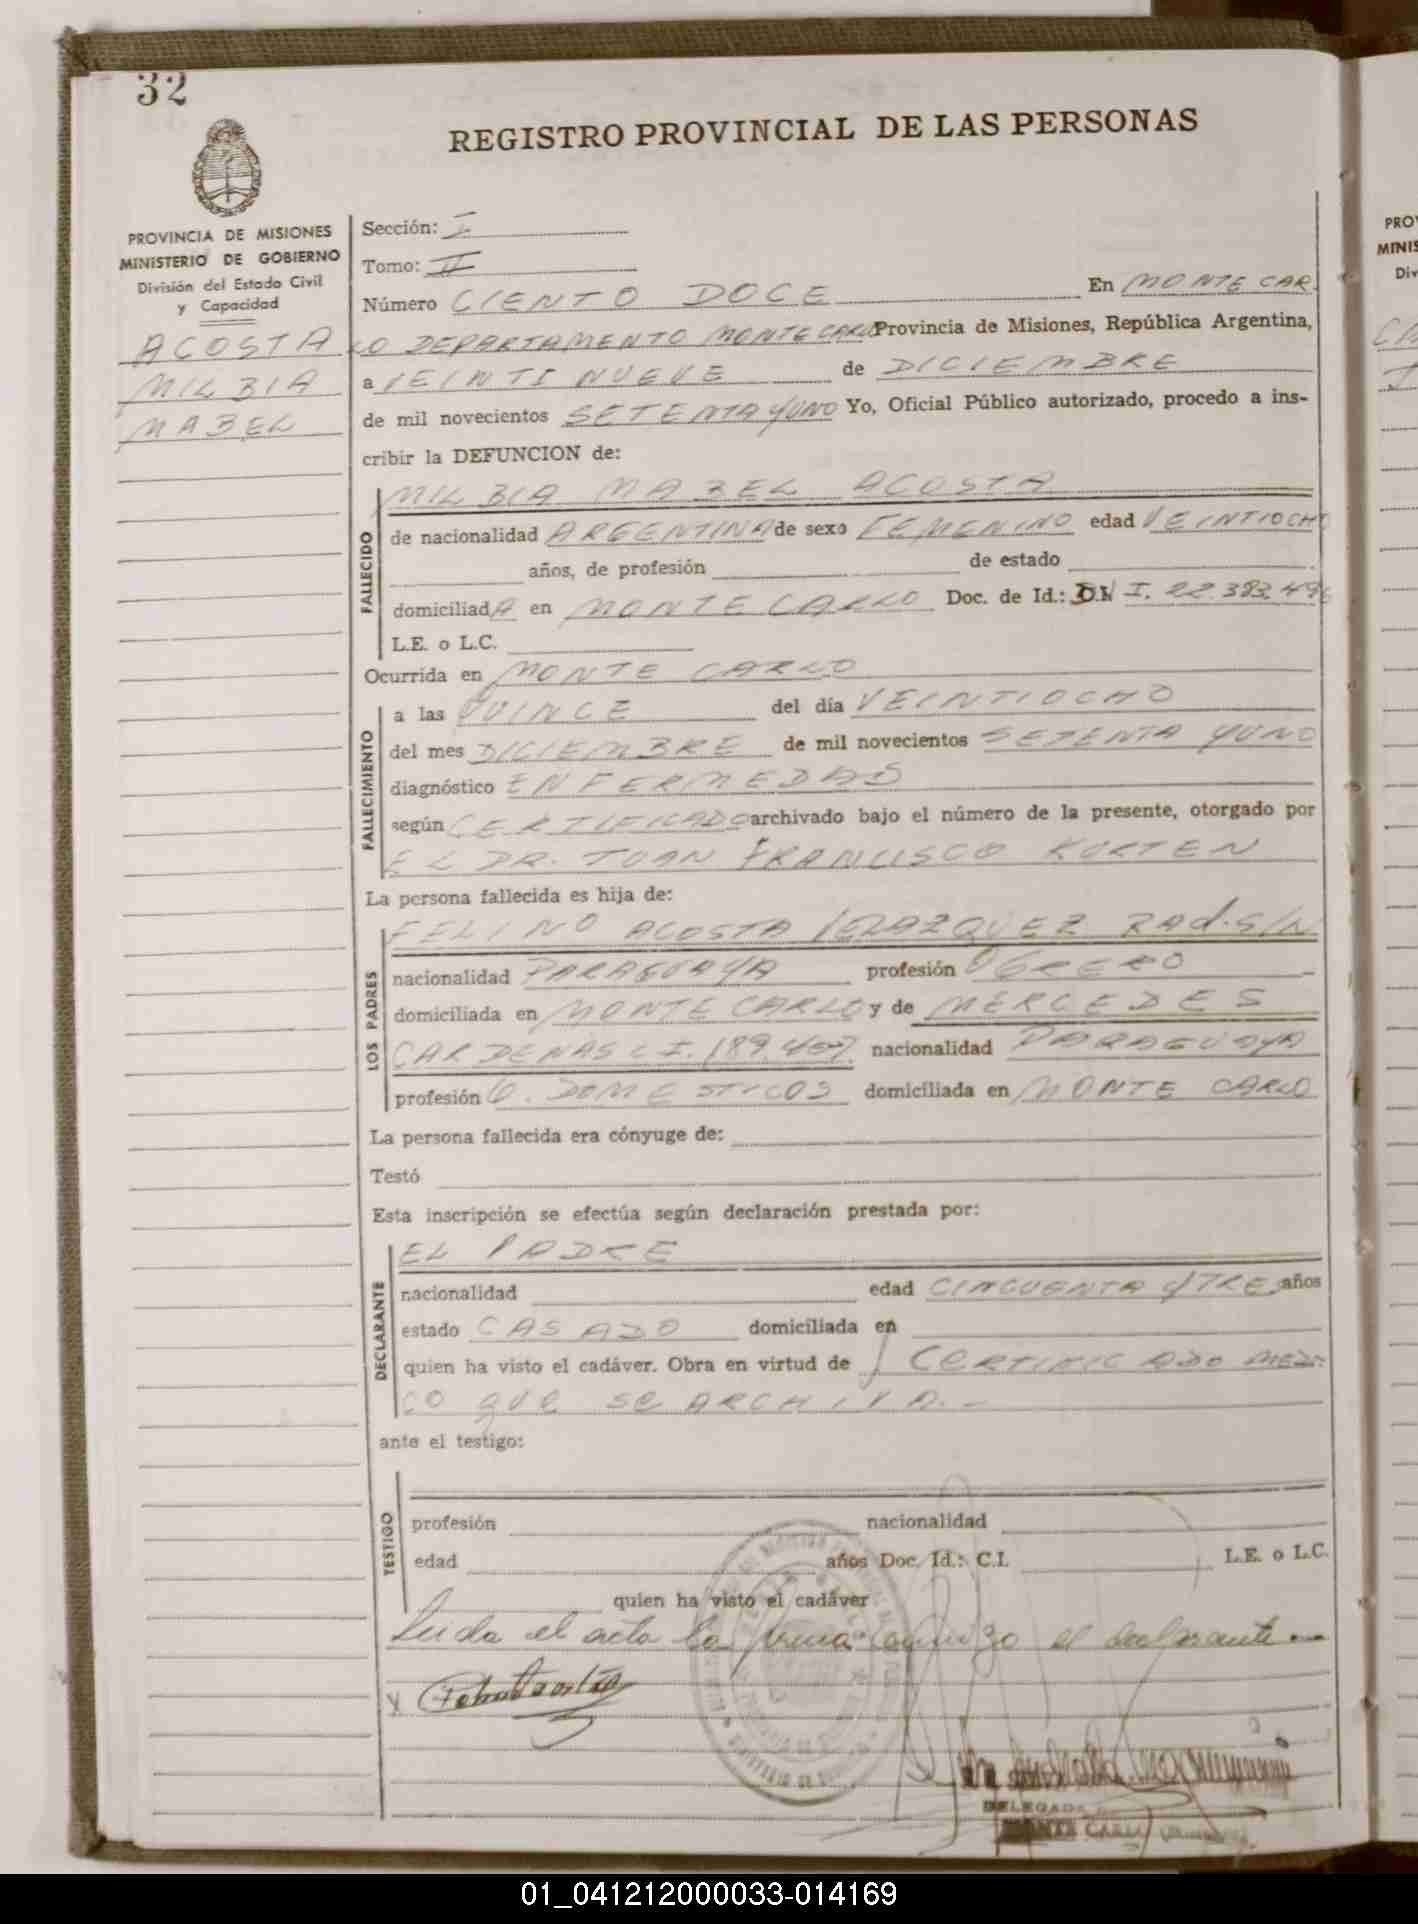 32
REGISTRO PROVINCIAL DE LAS PERSONAS
PROVINCIA DE MISIONES
MINISTERIO DE GOBIERNO
División del Estado Civil
y Capacidad
ACOSTA
MILBIA
MABEL
Sección: I
Tomo: II
Número CIENTO DOCE En MONTE CAR
LO DEPARTAMENTO MONTECARLO Provincia de Misiones, República Argentina,
a VEINTI NUEVE de DICIEMBRE
de mil novecientos SETENTA Y UNO Yo, Oficial Público autorizado, procedo a ins-
cribir la DEFUNCION de:
FALLECIDO
MILBIA MABEL ACOSTA
de nacionalidad ARGENTINA de sexo FEMENINO edad VEINTIOCHO
años, de profesión de estado
domiciliada en MONTE CARLO Doc. de Id.: D.N I. 22.383.496
L.E. o L.C.
Ocurrida en MONTE CARLO
FALLECIMIENTO
a las QUINCE del día VEINTIOCHO
del mes DICIEMBRE de mil novecientos SETENTA Y UNO
diagnóstico ENFERMEDAD
según CERTIFICADO archivado bajo el número de la presente, otorgado por
EL DR. JUAN FRANCISCO KORTEN
La persona fallecida es hija de:
LOS PADRES
FELINO ACOSTA VELAZQUEZ RAd. S/N
nacionalidad PARAGUAYA profesión OBRERO
domiciliada en MONTE CARLO y de MERCEDES
CARDENAS C I. 189.407 nacionalidad PARAGUAYA
profesión Q. DOMESTICOS domiciliada en MONTE CARLO
La persona fallecida era cónyuge de:
Testó
Esta inscripción se efectúa según declaración prestada por:
DECLARANTE
EL PADRE
nacionalidad edad CINCUENTA Y TRES años
estado CASADO domiciliada en
quien ha visto el cadáver. Obra en virtud de CERTIFICADO MEDI
CO QUE SE ARCHIVA.-
ante el testigo:
TESTIGO
profesión nacionalidad
edad años Doc. Id.: C.I. L.E. o L.C.
quien ha visto el cadáver
Leida el acta la firma conmigo el declarante
X
DELEGADA
MONTE CARLO
PRO
MINIS
Div
01_041212000033-014169